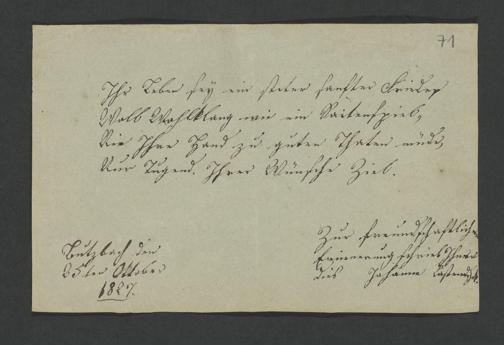 71
Ihr Leben sey ein steter sanfter Frieden
Voll Wohlklang wie ein Saitenspiel,
Nie Ihre Hand zu guten Thaten müde,
Nur Tugend Ihrer Wünsche Ziel.
Zur freundschaftlichen
Erinnerung schrieb Ihnen
dies Johanne
Butzbach den
25ten Oktober
1827.